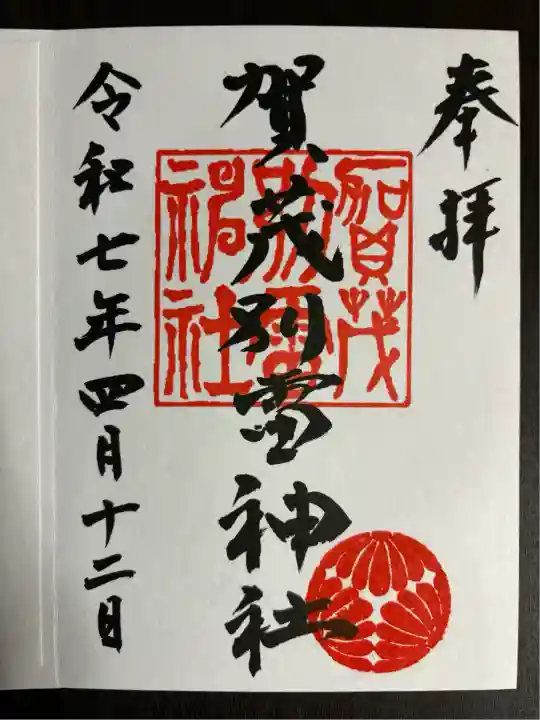 奉拝
賀茂別雷神社
賀茂
別雷
神社
令和七年四月十二日